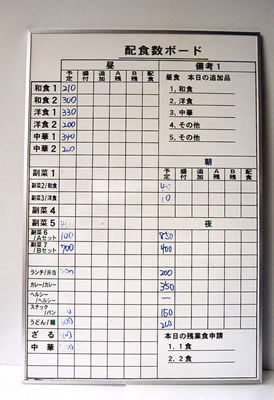 配食数ボード
昼 備考1
予定 盛付 追加 A残 B残 配食 昼食 本日の追加品
和食1 210 1.和食
和食2 300 2.洋食
洋食1 330 3.中華
洋食2 200 4.その他
中華1 340 5.その他
中華2
朝
副菜1 予定 盛付 追加 A残 B残 配食
副菜2/和食
副菜3/洋食
副菜4
副菜5 夜
副菜6/Aセット 100
副菜7/Bセット 700 400
ランチ/弁当 200
カレー/カレー 350
ヘルシー/ヘルシー
スナック/パン 150
うどん/麺
ざる 本日の残業食申請
中華 1.1食
2.2食